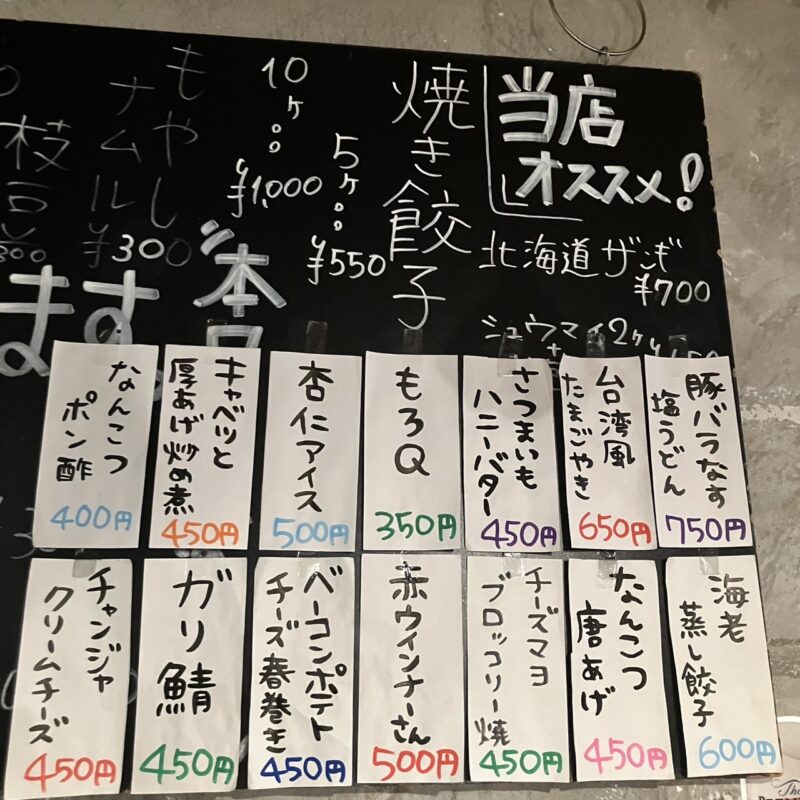 当店
オススメ!
北海道ザンギ
¥700
シュウマイ2ヶ
焼き餃子
5ヶ。。
¥550
10ヶ。。
¥1,000
もやし
ナムル
¥300
枝豆
300
ます。
豚バラなす
塩うどん
750円
台湾風
たまごやき
650円
さつまいも
ハニーバター
450円
もろQ
350円
杏仁アイス
500円
キャベツと
厚あげ炒め煮
450円
なんこつ
ポン酢
400円
海老
蒸し餃子
600円
なんこつ
唐あげ
450円
チーズマヨ
ブロッコリー焼
450円
赤ウインナーさん
500円
ベーコンポテト
チーズ春巻き
450円
ガリ鯖
450円
チャンジャ
クリームチーズ
450円